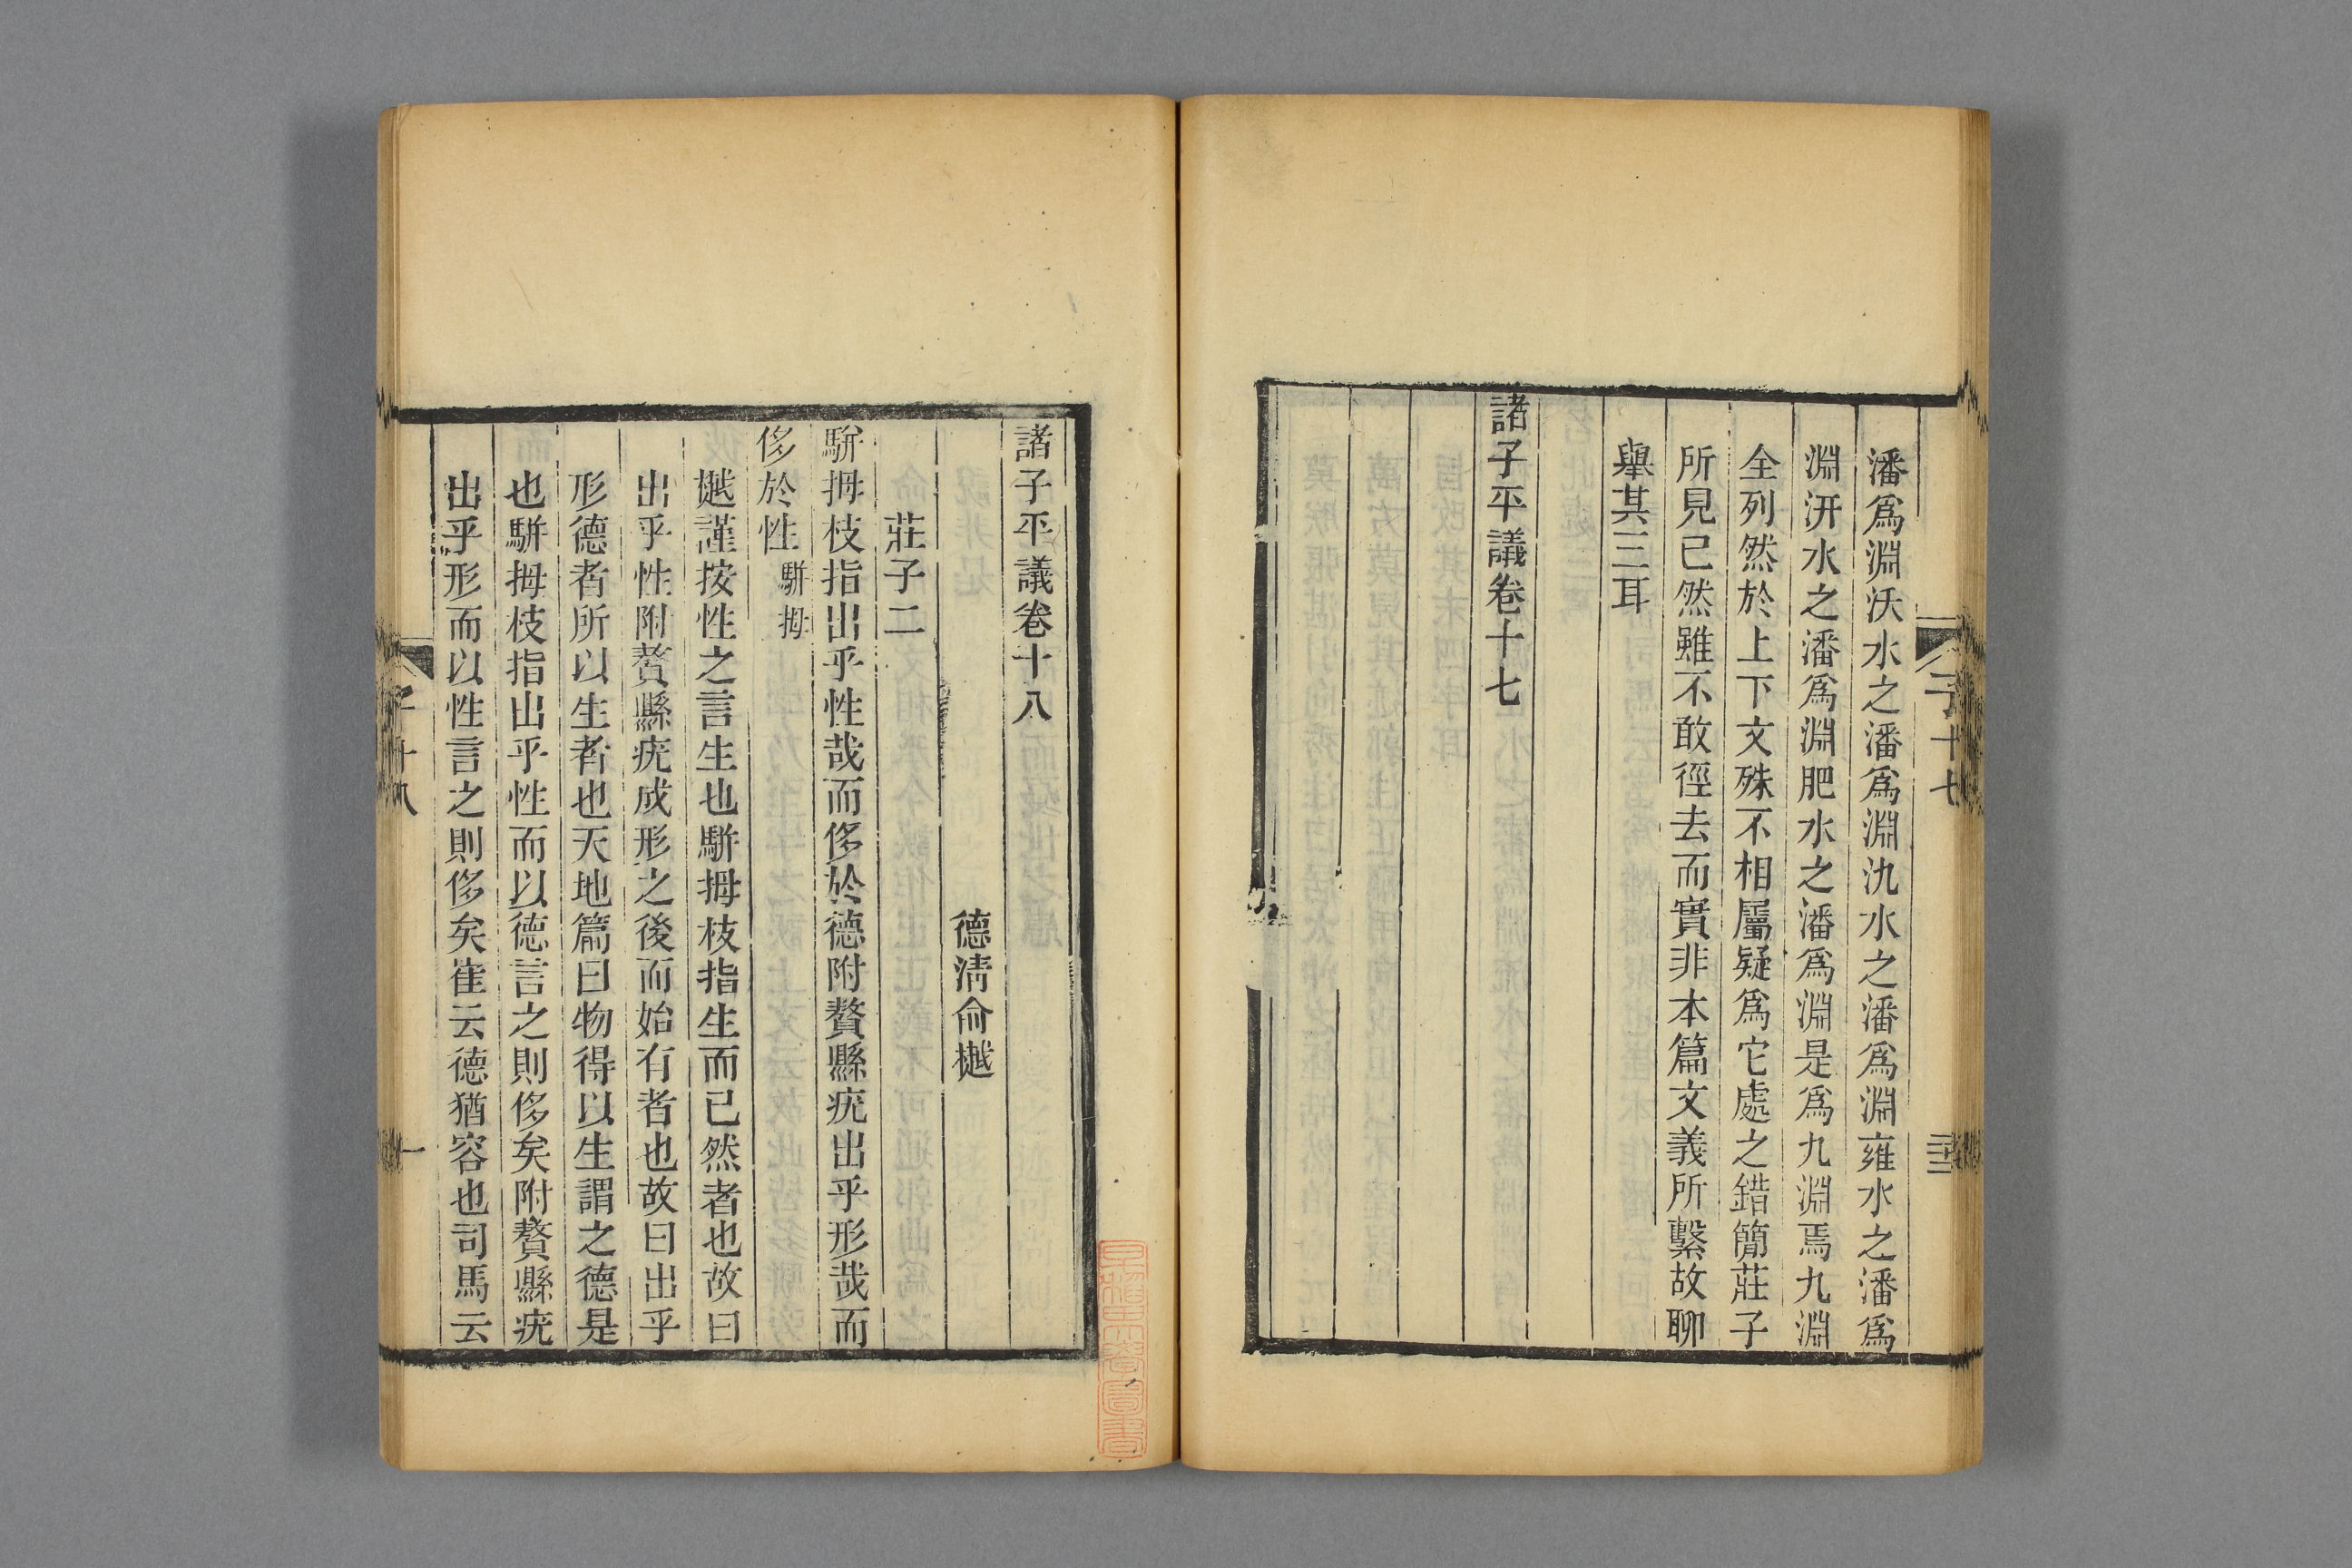 潘爲淵沃水之潘爲淵氿水之潘爲淵雍水之潘爲
淵汧水之潘爲淵肥水之潘爲淵是爲九淵焉九淵
全列然於上下文殊不相屬疑爲它處之錯簡莊子
所見已然雖不敢徑去而實非本篇文義所繫故聊
舉其三耳
諸子平議卷十七
子十七
諸子平議卷十八
德淸俞樾
莊子二
駢拇枝指出乎性哉而侈於德附贅縣疣出乎形哉而
侈於性駢拇
樾謹按性之言生也駢拇枝指生而已然者也故曰
出乎性附贅縣疣成形之後而始有者也故曰出乎
形德者所以生者也天地篇曰物得以生謂之德是
也駢拇枝指出乎性而以德言之則侈矣附贅縣疣
出乎形而以性言之則侈矣崔云德猶容也司馬云
子十八
一